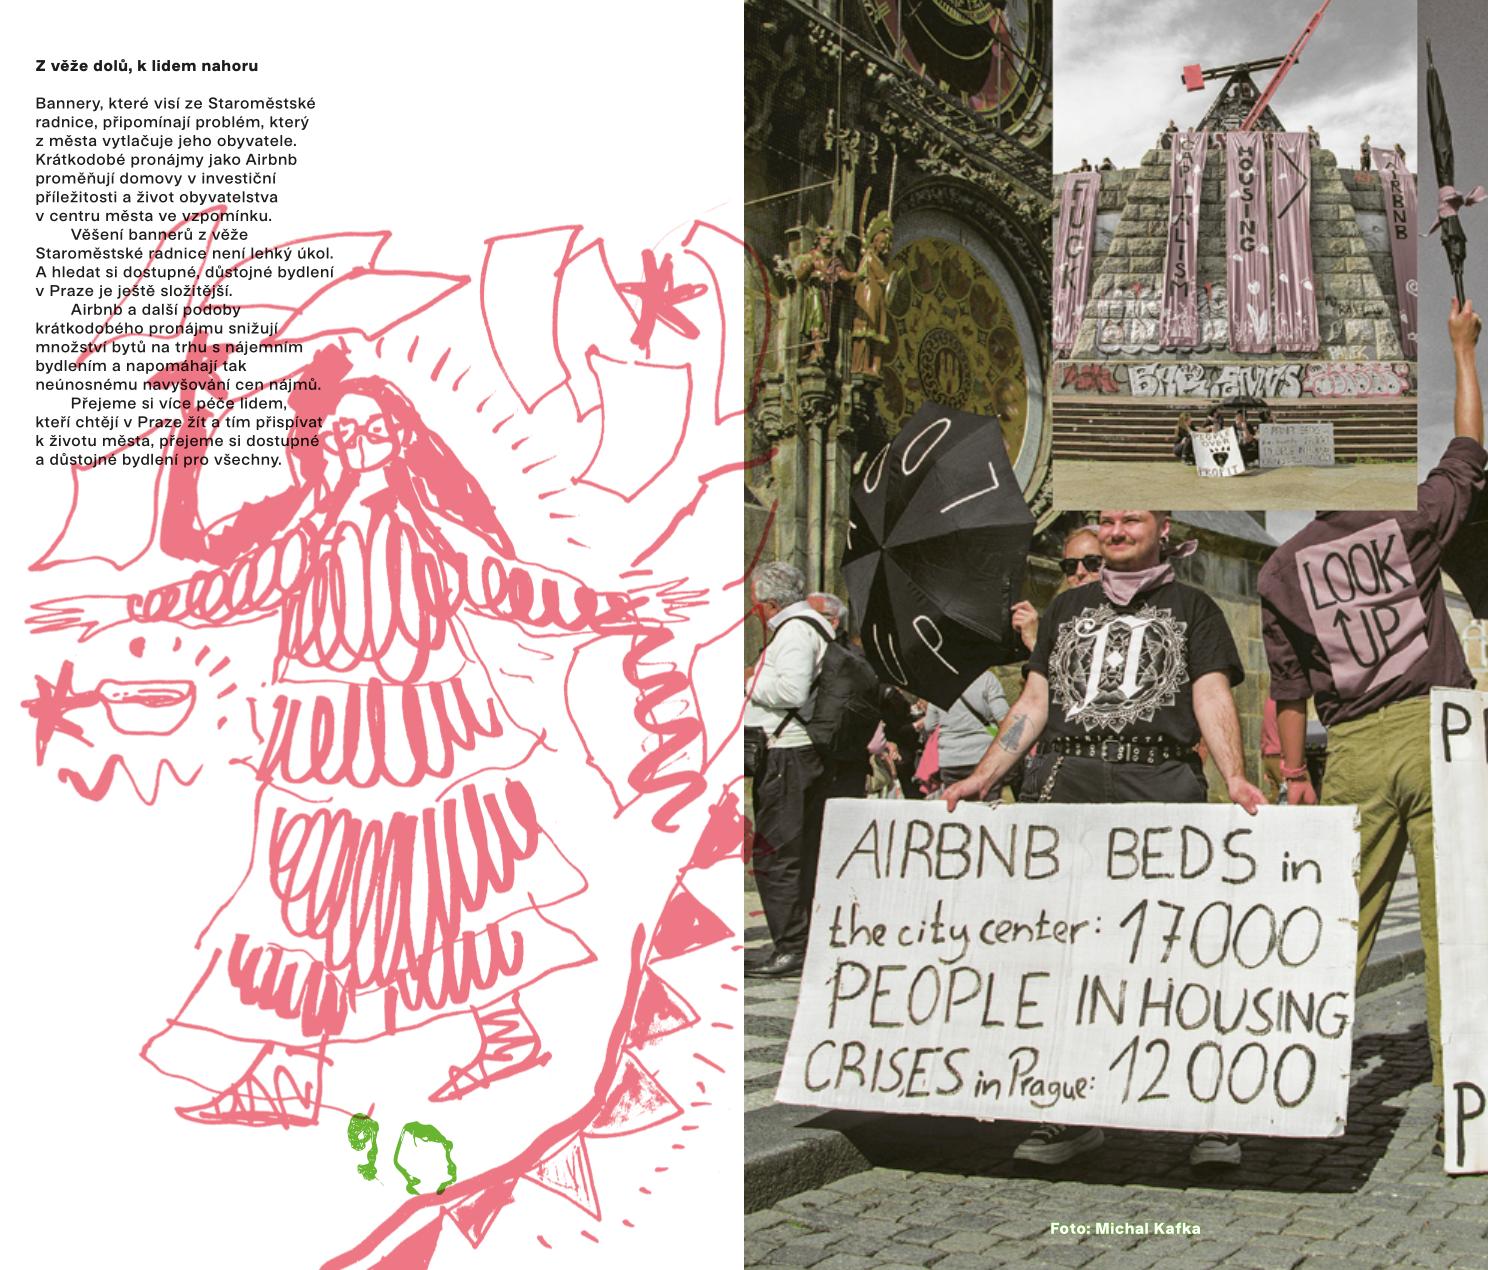 Z věže dolů, k lidem nahoru
Bannery, které visí ze Staroměstské
radnice, připomínají problém, který
z města vytlačuje jeho obyvatele.
Krátkodobé pronájmy jako Airbnb
proměňují domovy v investiční
příležitosti a život obyvatelstva
v centru města ve vzpomínku.
Věšení bannerů z věže
Staroměstské radnice není lehký úkol.
A hledat si dostupné, důstojné bydlení
v Praze je ještě složitější.
Airbnb a další podoby
krátkodobého pronájmu snižují
množství bytů na trhu s nájemním
bydlením a napomáhají tak
neúnosnému navyšování cen nájmů.
Přejeme si více péče lidem,
kteří chtějí v Praze žít a tím přispívat
k životu města, přejeme si dostupné
a důstojné bydlení pro všechny.
90
FUCK
CAPITALISM
HOUSING
AIRBNB
PEOPLE
OVER
PROFIT
LOOK
UP
LOOK
UP
AIRBNB BEDS in
the city center: 17000
PEOPLE IN HOUSING
CRISES in Prague: 12000
P
P
Foto: Michal Kafka